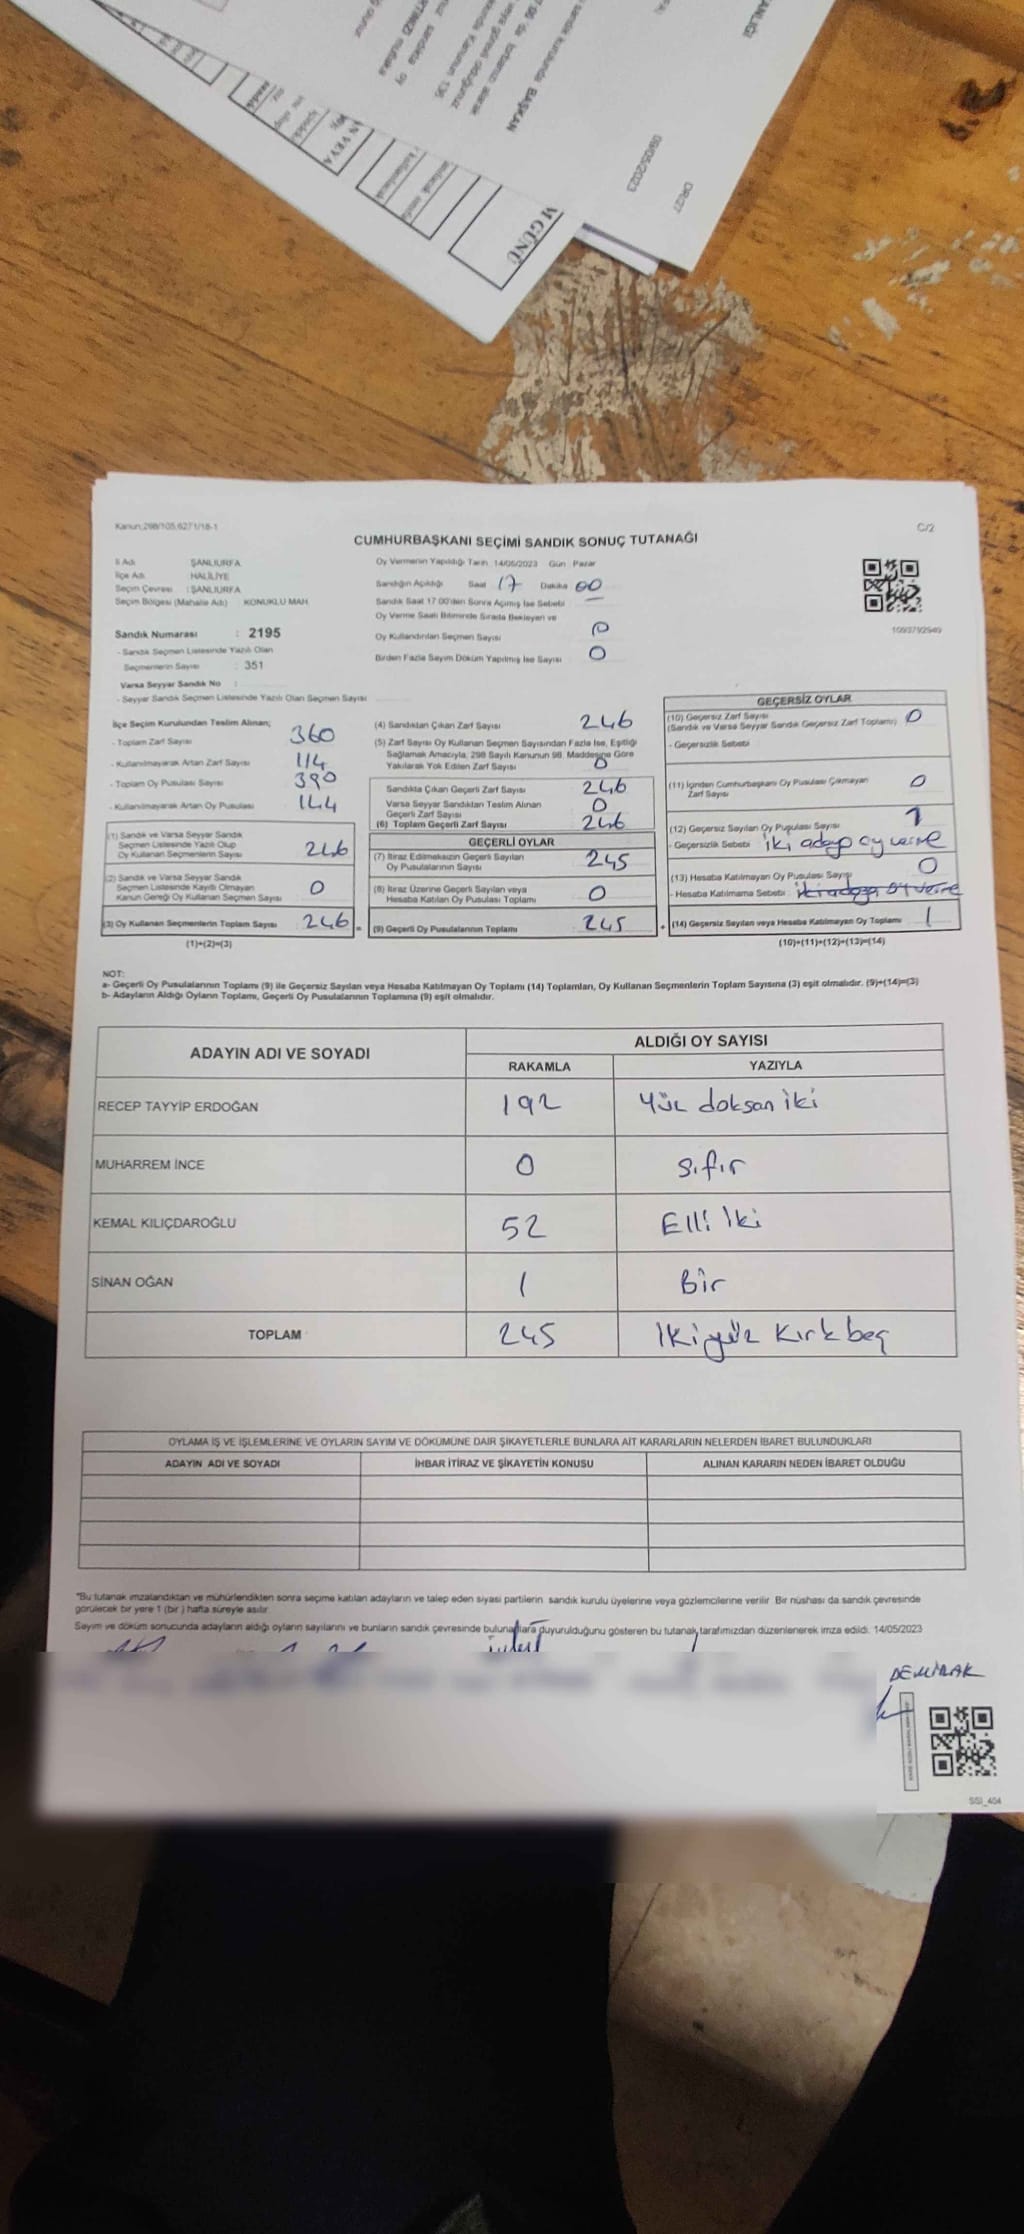 M GÜNÜ
09/05/2023
DR:27
BAŞKAN
Kanun;298/105,6271/18-1
C/2
CUMHURBAŞKANI SEÇİMİ SANDIK SONUÇ TUTANAĞI
İl Adı : ŞANLIURFA
İlçe Adı : HALİLİYE
Seçim Çevresi : ŞANLIURFA
Seçim Bölgesi (Mahalle Adı) KONUKLU MAH.
Sandık Numarası : 2195
- Sandık Seçmen Listesinde Yazılı Olan
Seçmenlerin Sayısı : 351
Varsa Seyyar Sandık No :
- Seyyar Sandık Seçmen Listesinde Yazılı Olan Seçmen Sayısı
Oy Vermenin Yapıldığı Tarih: 14/05/2023 Gün : Pazar
Sandığın Açıldığı Saat 17 Dakika 00
Sandık Saat 17.00'den Sonra Açılmış İse Sebebi
Oy Verme Saati Bitiminde Sırada Bekleyen ve
Oy Kullandırılan Seçmen Sayısı 0
Birden Fazla Sayım Döküm Yapılmış İse Sayısı 0
1093792949
İlçe Seçim Kurulundan Teslim Alınan;
- Toplam Zarf Sayısı 360
- Kullanılmayarak Artan Zarf Sayısı 114
- Toplam Oy Pusulası Sayısı 390
- Kullanılmayarak Artan Oy Pusulası 144
(1) Sandık ve Varsa Seyyar Sandık
Seçmen Listesinde Yazılı Olup
Oy Kullanan Seçmenlerin Sayısı 246
(2) Sandık ve Varsa Seyyar Sandık
Seçmen Listesinde Kayıtlı Olmayan
Kanun Gereği Oy Kullanan Seçmen Sayısı 0
(3) Oy Kullanan Seçmenlerin Toplam Sayısı 246 =
(1)+(2)=(3)
(4) Sandıktan Çıkan Zarf Sayısı 246
(5) Zarf Sayısı Oy Kullanan Seçmen Sayısından Fazla İse, Eşitliği
Sağlamak Amacıyla, 298 Sayılı Kanunun 98. Maddesine Göre
Yakılarak Yok Edilen Zarf Sayısı 0
Sandıkta Çıkan Geçerli Zarf Sayısı 246
Varsa Seyyar Sandıktan Teslim Alınan
Geçerli Zarf Sayısı 0
(6) Toplam Geçerli Zarf Sayısı 246
GEÇERLİ OYLAR
(7) İtiraz Edilmeksizin Geçerli Sayılan
Oy Pusulalarının Sayısı 245
(8) İtiraz Üzerine Geçerli Sayılan veya
Hesaba Katılan Oy Pusulası Toplamı 0
(9) Geçerli Oy Pusulalarının Toplamı 245 +
GEÇERSİZ OYLAR
(10) Geçersiz Zarf Sayısı 0
(Sandık ve Varsa Seyyar Sandık Geçersiz Zarf Toplamı)
- Geçersizlik Sebebi
(11) İçinden Cumhurbaşkanı Oy Pusulası Çıkmayan
Zarf Sayısı 0
(12) Geçersiz Sayılan Oy Pusulası Sayısı 1
- Geçersizlik Sebebi iki adaya oy verme
(13) Hesaba Katılmayan Oy Pusulası Sayısı 0
- Hesaba Katılmama Sebebi iki adaya oy verme
(14) Geçersiz Sayılan veya Hesaba Katılmayan Oy Toplamı 1
(10)+(11)+(12)+(13)=(14)
NOT:
a- Geçerli Oy Pusulalarının Toplamı (9) ile Geçersiz Sayılan veya Hesaba Katılmayan Oy Toplamı (14) Toplamları, Oy Kullanan Seçmenlerin Toplam Sayısına (3) eşit olmalıdır. (9)+(14)=(3)
b- Adayların Aldığı Oyların Toplamı, Geçerli Oy Pusulalarının Toplamına (9) eşit olmalıdır.
ADAYIN ADI VE SOYADI
ALDIĞI OY SAYISI
RAKAMLA YAZIYLA
RECEP TAYYİP ERDOĞAN 192 Yüz doksan iki
MUHARREM İNCE 0 Sıfır
KEMAL KILIÇDAROĞLU 52 Elli iki
SİNAN OĞAN 1 Bir
TOPLAM 245 İkiyüz Kırk beş
OYLAMA İŞ VE İŞLEMLERİNE VE OYLARIN SAYIM VE DÖKÜMÜNE DAİR ŞİKAYETLERLE BUNLARA AİT KARARLARIN NELERDEN İBARET BULUNDUKLARI
ADAYIN ADI VE SOYADI İHBAR İTİRAZ VE ŞİKAYETİN KONUSU ALINAN KARARIN NEDEN İBARET OLDUĞU
*Bu tutanak imzalandıktan ve mühürlendikten sonra seçime katılan adayların ve talep eden siyasi partilerin sandık kurulu üyelerine veya gözlemcilerine verilir. Bir nüshası da sandık çevresinde
görülecek bir yere 1 (bir ) hafta süreyle asılır.
Sayım ve döküm sonucunda adayların aldığı oyların sayılarını ve bunların sandık çevresinde bulunanlara duyurulduğunu gösteren bu tutanak tarafımızdan düzenlenerek imza edildi. 14/05/2023
DEMİRAK
SSI_404